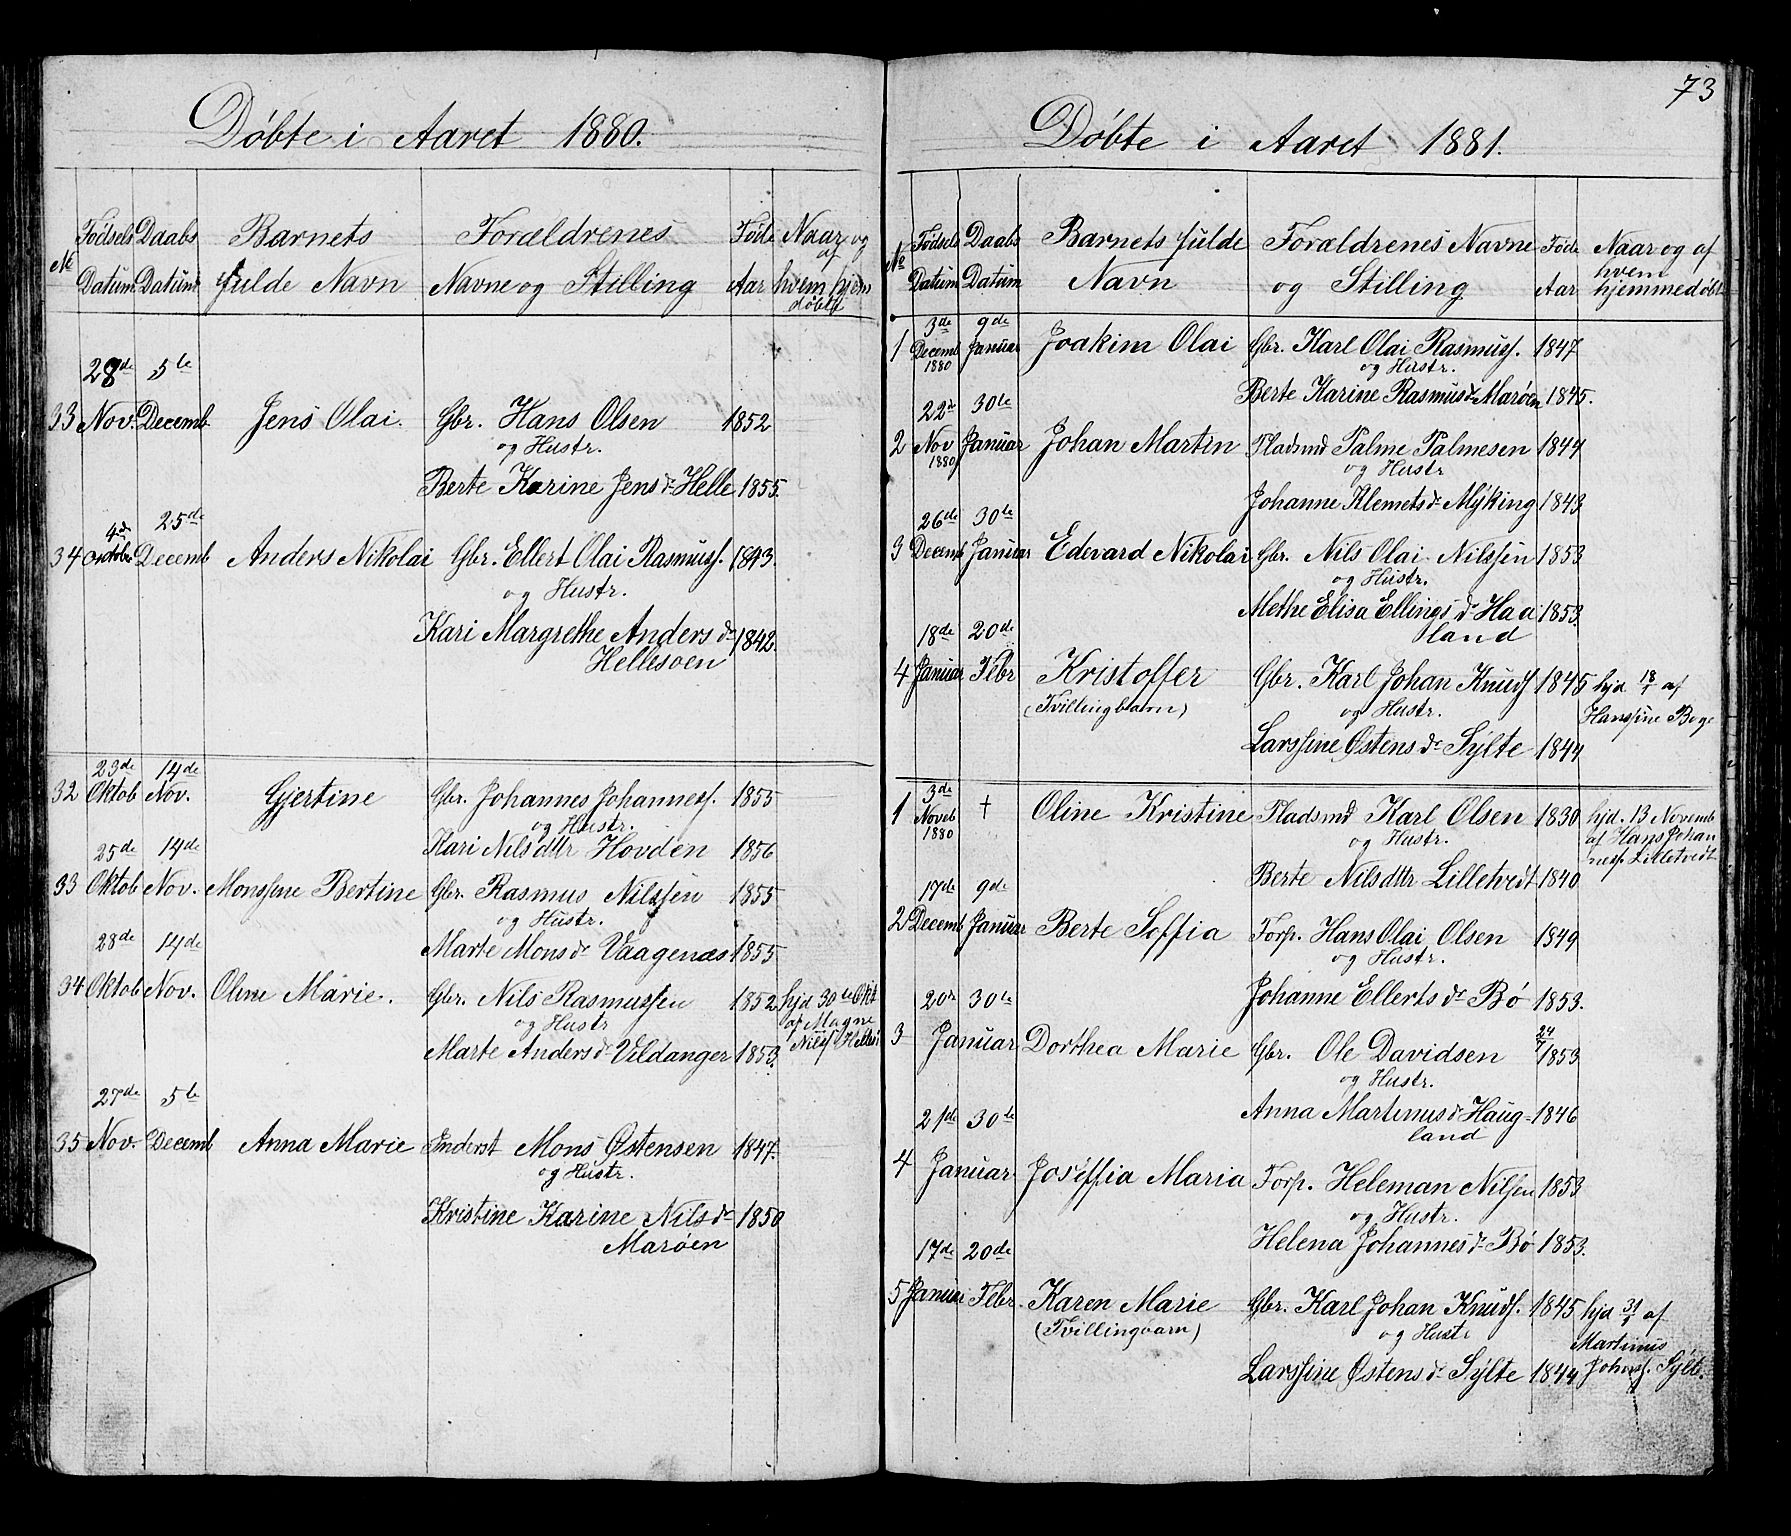 Døbte i Aaret 1880.
№ Fødsels Datum Daabs Datum Barnets fulde Navn Forældrenes Navne og Stilling Føde Aar Naar og af hvem hjemdøbt
28de 5te
33 Nov. Decemb Jens Olai. Gbr. Hans Olsen 1852
og Hustr.
Berte Karine Jensdr Helle 1855.
4d 25de
34 Oktober Decemb Anders Nikolai Gbr. Ellert Olai Rasmuss. 1843.
og Hustr.
Kari Margrethe Andersdr 1842.
Hellesøen
23de 14de
32 Oktob Nov. Gjertine Gbr. Johannes Johanness. 1855
og Hustr.
25de 14de Kari Nilsdttr Hovden 1856
33 Oktob Nov. Monssine Bertine Gbr. Rasmus Nilssen 1855
og Hustr.
28de 14de Marte Monsdr Vaagenæs 1855
34 Oktob Nov. Oline Marie. Gbr. Nils Rasmussen 1852 hjd 30te Okt
og Hustr af Magne
Marte Andersdr Vildanger 1853. Nilss Hellesø
27de 5te
35 Nov. Decemb Anna Marie Inderst Mons Østensen 1847.
og Hustr.
Kristine Karine Nilsdr 1850
Marøen
73
Døbte i Aaret 1881.
№ Fødsels Datum Daabs Datum Barnets fulde Navn Forældrenes Navne og Stilling Føde Aar Naar og af hvem hjemmedøbt
3de 9de
1 Decemb Januar Joakim Olai Gbr. Karl Olai Rasmuss. 1847
1880 og Hustr.
Berte Karine Rasmusdr Marøen 1845.
22de 30te
2 Nov Januar Johan Martin Pladsmd Palme Palmesen 1844
1880 og Hustr
Johanne Klemetsdr Mýking 1843
26de 30te
3 Decemb Januar Edevard Nikolai Gbr. Nils Olai Nilssen 1853
og Hustr.
Methe Elisa Ellingsdr Haa 1853.
18de 20de land
4 Januar Febr Kristoffer Gbr. Karl Johan Knuds 1845 hjd 18/1 af
(Tvillingbarn) og Hustr. Hanssine Boge
Larssine Østensdr Sýlte 1844
3de
1 Noveb † Oline Kristine Pladsmd Karl Olsen 1830 hjd. 13 Novemb
1880 og Hustr. af Hans Johan
ness. Lilletvedt
Berte Nilsdttr Lilletvedt 1840
17de 9de
2 Decemb Januar Berte Soffia Forp. Hans Olai Olsen 1849
og Hustr.
20de 30te Johanne Ellertsdr Bø 1853.
3 Januar Dorthea Marie Gbr. Ole Davidsen 24/7 1853
og Hustr.
Anna Martinusdr Haug- 1846
21de 30te land
4 Januar Joseffia Maria Forp. Heleman Nilsen 1853
og Hustr.
17de 20de Helena Johannesdr Bø 1853.
5 Januar Febr. Karen Marie Gbr. Karl Johan Knuds. 1845 hjd 31/1 af
(Tvillingbarn) og Hustr Martinus
Larssine Østensdr Sýlte 1844 Johans. Sýlte.